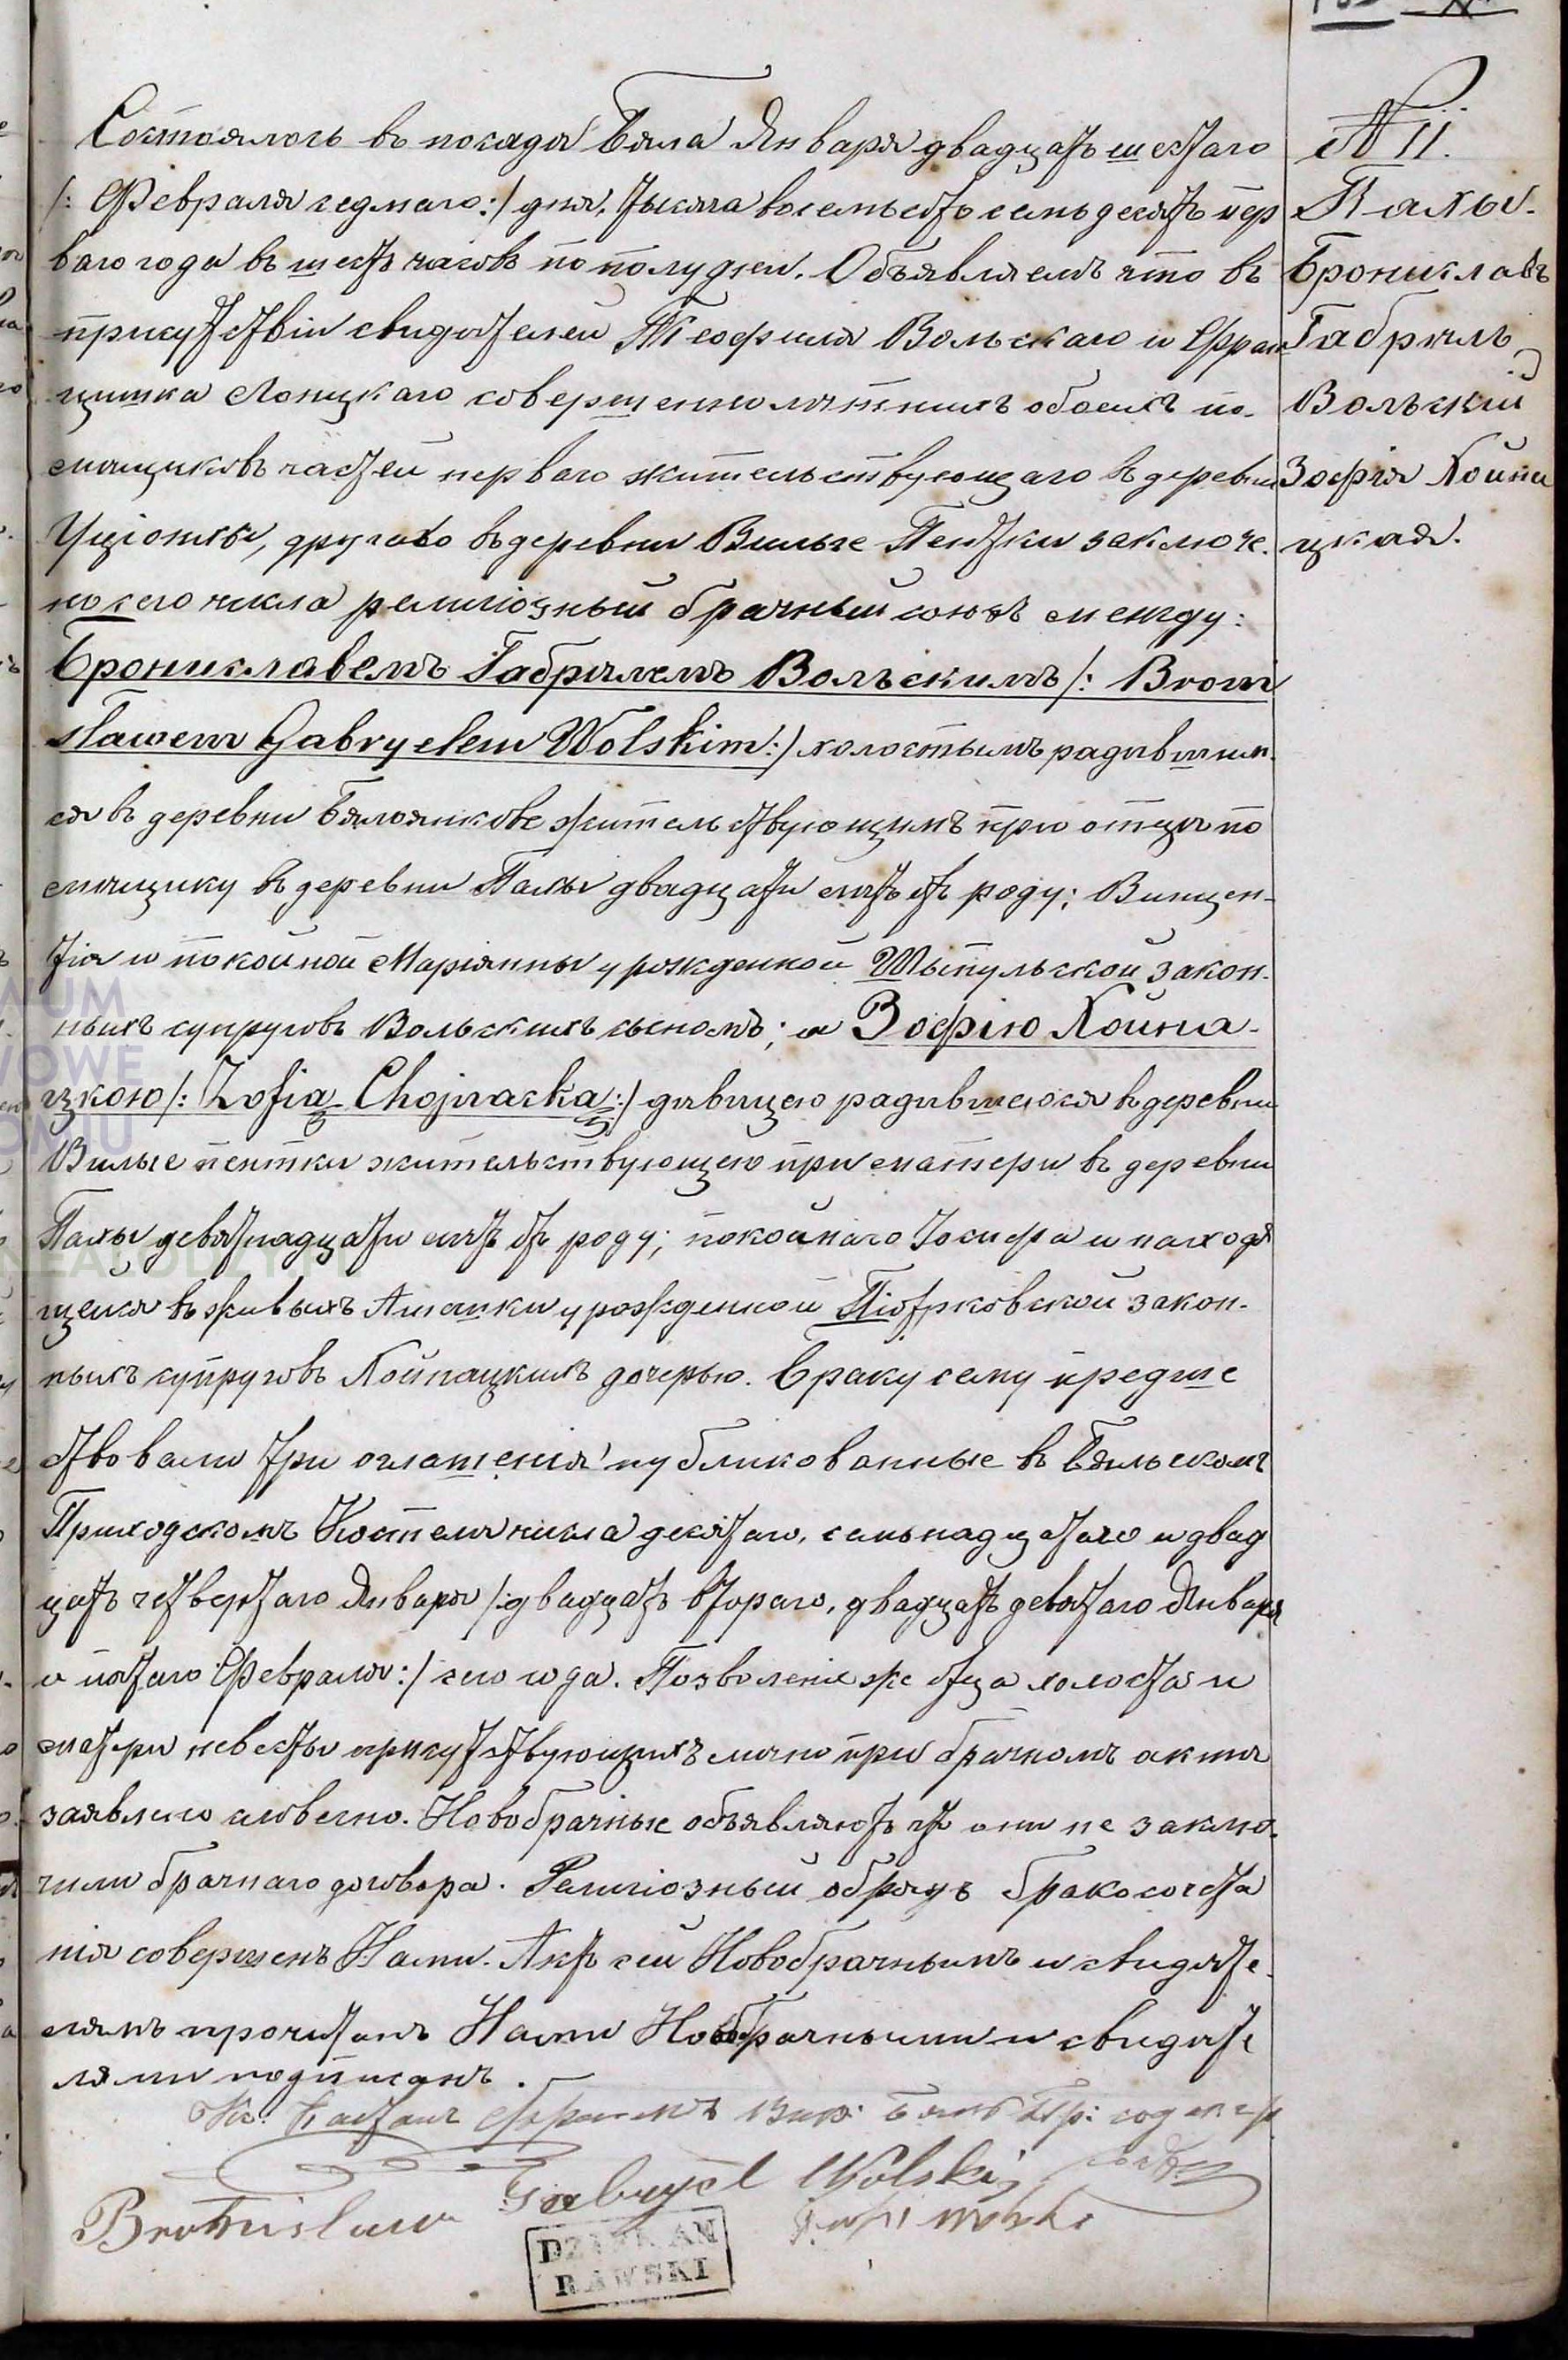 № 11.
Пахы.
Брониславъ
Габріэль
Вольскій
Зофія Хойна
цкая.
Состоялось въ посадѣ Бяла Января двадцать шестаго
/: Февраля седмаго :/ дня, тысяча восемьсотъ семьдесятъ пер
ваго года въ шесть часовъ по полудни. Объявляемъ что въ
присутствіи свидѣтелей Теофиля Вольскаго и Фран
цишка Лопацкаго совершеннолѣтнихъ обоихъ по-
мѣщиковъ частей перваго жительствующаго въ деревни
другаго въ деревни Вильче Пентки заключе.
но сего числа религіозный брачный союзъ между:
Брониславемъ Габрялемъ Вольскимъ /: Broni
sławem Gabryelem Wolskim :/ холостымъ радившим
ся въ деревни жительствующимъ при отцѣ по
мѣщику въ деревни Пахы двадцати лѣтъ отъ роду; Винцен-
тія и покойной Маріянны урожденной Шыпульской закон-
ныхъ супруговъ Вольскихъ сыномъ; и Зофіею Хойна-
цкою /: Zofią Chojnacką :/ дѣвицею радившеюся въ деревни
Вильче пентки жительствующею при матери въ деревни
Пахы девятнадцати лѣтъ отъ роду; покойнаго Іосифа и находя
щейся въ живыхъ урожденной Піотрковской закон-
ныхъ супруговъ Хойнацкихъ дочерью. Браку сему предше
ствовали три оглашенія публикованные въ Бяльскомъ
Приходскомъ Костелѣ числа десятаго, семьнадцатаго и двад
цать четвертаго Января /: двадцать втораго, двадцать девятаго Января
и пятаго Февраля :/ сего года. Позволеніе же отца холоста и
матери невесты присутствующихъ лично при брачномъ актѣ
заявлено словесно. Новобрачные объявляютъ что они не заклю-
чили брачнаго договора. Религіозный обрядъ бракосочета
нія совершенъ Нами. Актъ сей Новобрачнымъ и свидѣте-
лямъ прочитанъ Нами Новобрачными и свидѣте
лями подписанъ.
Кс.
Bronisław Gabryel Wolski
DZIEKAN
RAWSKI